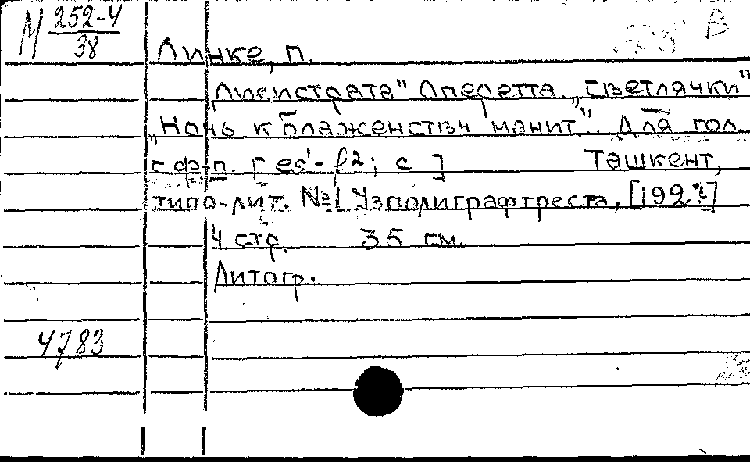 М 252-4/38
В
Линке, П.
"Лисистрата" Оперетта. „Светлячки"
„Ночь к блаженству манит". Для гол.
с ф-п. [es'-f2; c]   Ташкент,
типо-лит. №1 Узполиграфтреста, [192?]
4 стр.   35 см.
Литогр.
4783